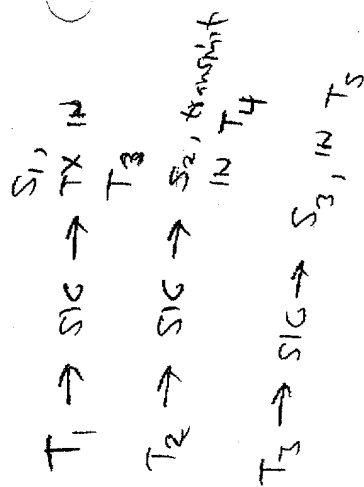 S1,
T1 → SIC → TX IN
T3
T2 → SIC → S2, transmit
IN T4
T3 → SIC → S3, IN T5